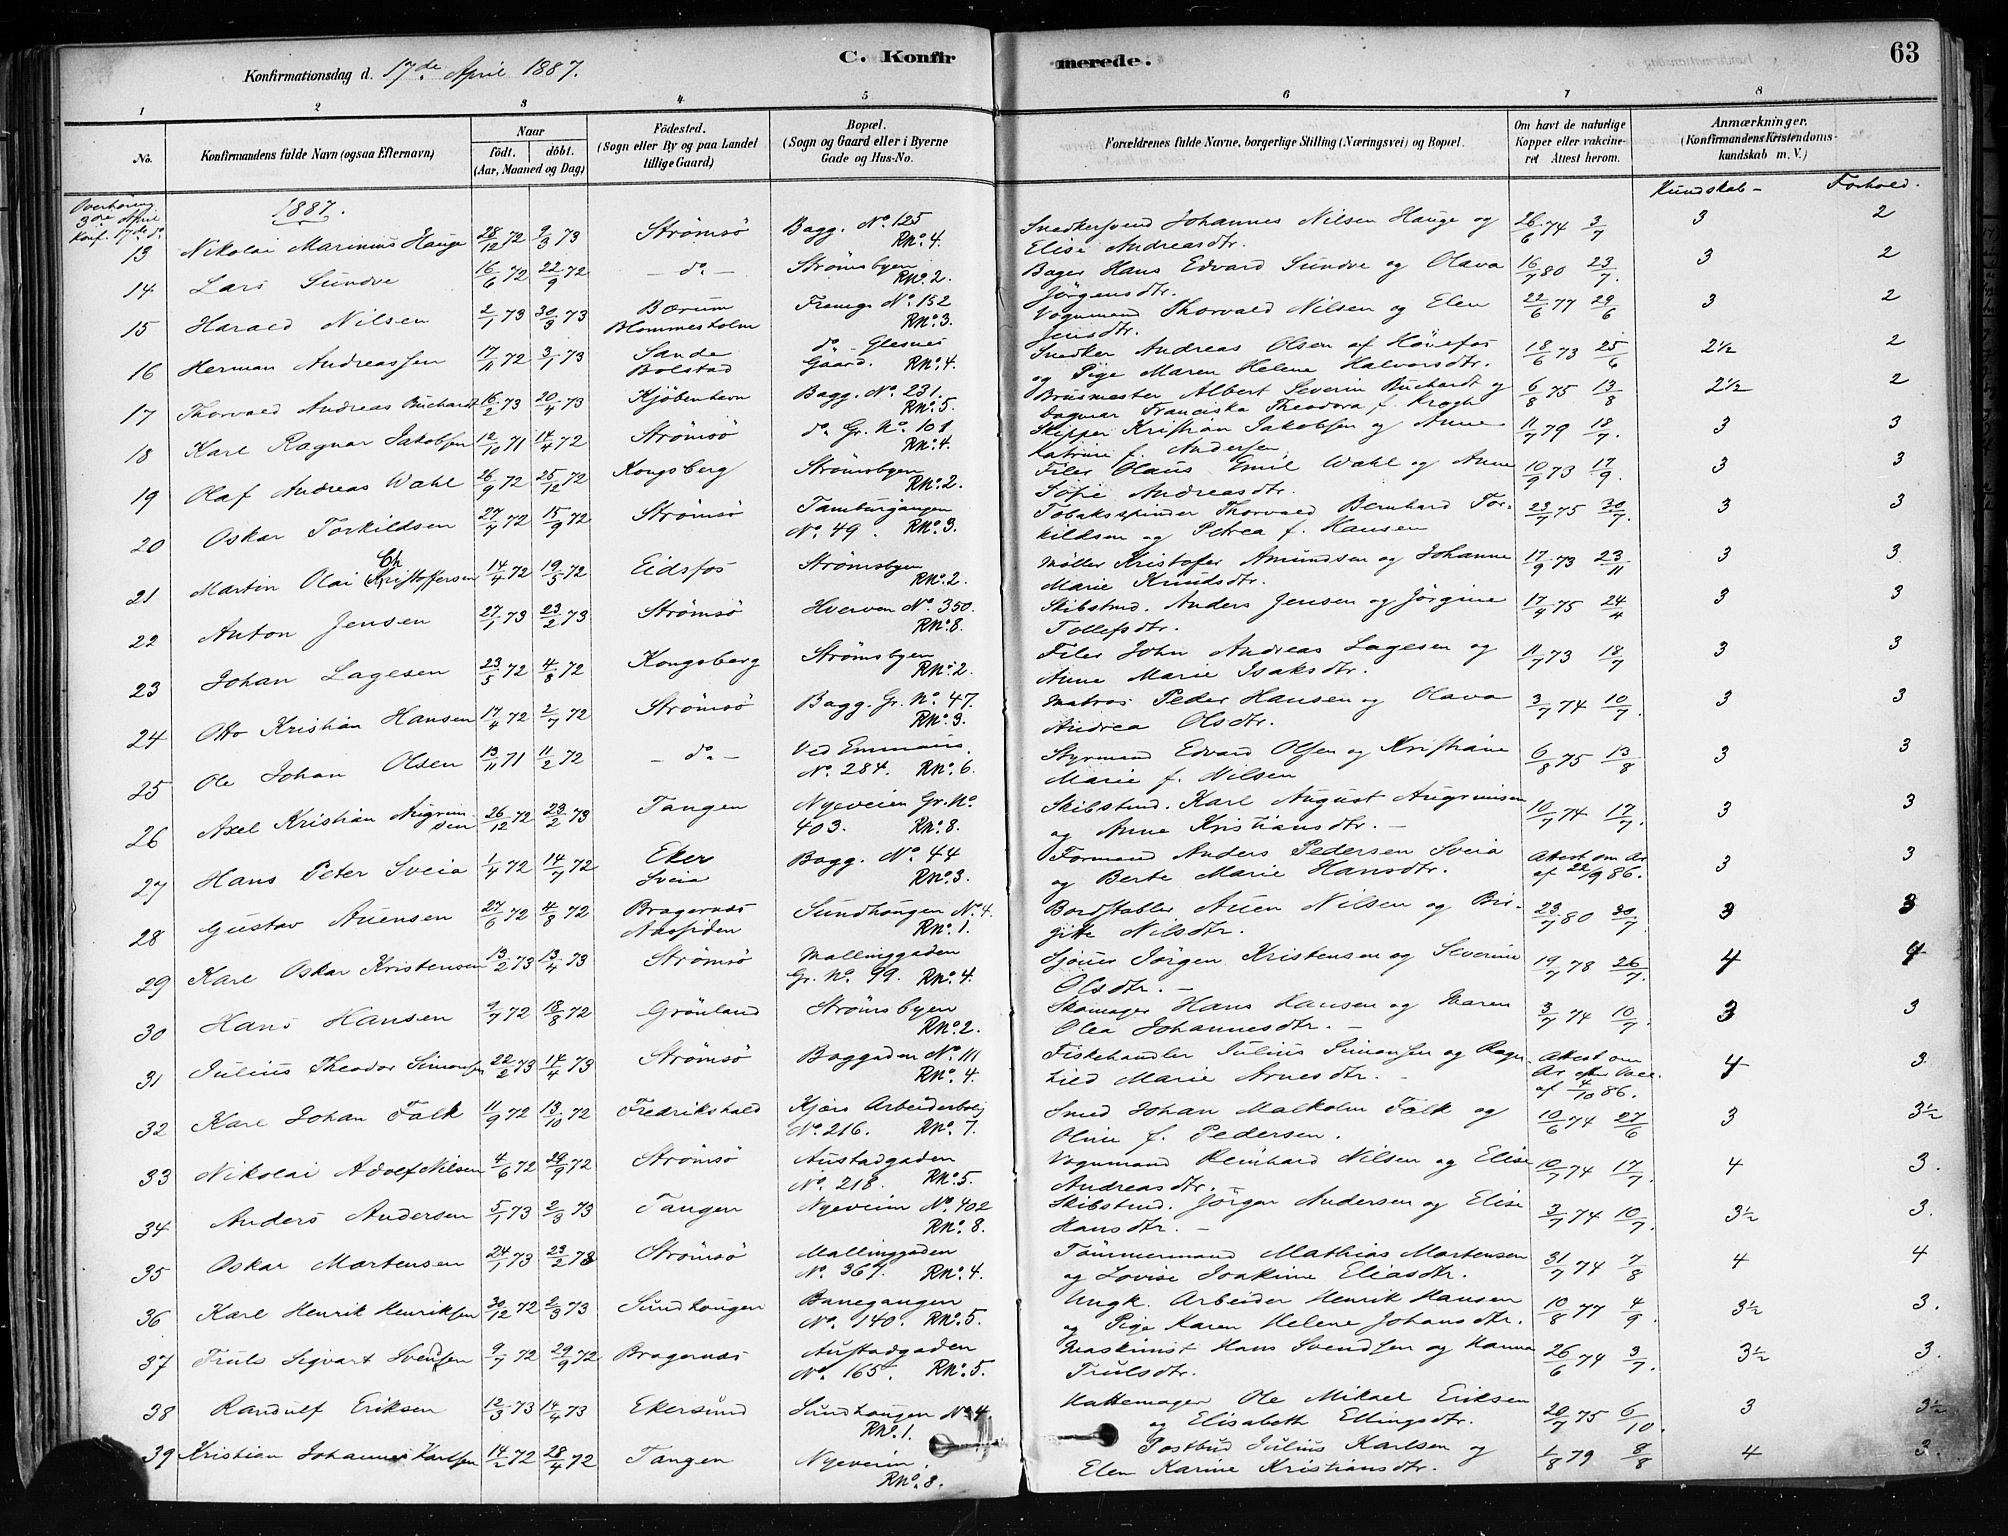 63
Konfirmationsdag d. 17de April 1887.
C. Konfirmerede.
1 2 3 4 5 6 7 8
No. Konfirmandens fulde Navn (ogsaa Efternavn) Naar født. døbt. (Aar, Maaned og Dag) Födested. (Sogn eller By og paa Landet tillige Gaard) Bopæl. (Sogn og Gaard eller i Byerne Gade og Hus-No. Forældrenes fulde Navne, borgerlige Stilling (Næringsvei) og Bopæl. Om havt de naturlige Kopper eller vakcineret. Attest herom. Anmærkninger. (Konfirmandens Kristendomskundskab m. V.)
Overhøring 3die April Konf. 17de do 1887. Kundskab - Forhold.
13 Nikolai Marinius Hauge 28/12 72 9/3 73 Strömsö Bagg. No. 125 RNo. 4. Snedkersvend Johannes Nilsen Hauge og Elise Andreasdtr. 26/6 74 3/7 3 2
14 Lars Sundve 16/6 72 22/9 72 - do - Strömsbyen RNo. 2. Bager Hans Edvard Sundve og Olava Jörgensdtr. 16/7 80 23/7 3 2
15 Harald Nilsen 2/1 73 30/3 73 Bærum Blommesholm Fremg. No. 152 RNo. 3. Vognmand Thorvald Nilsen og Elen Jensdtr. 22/6 77 29/6 3 2
16 Herman Andreassen 17/11 72 3/1 73 Sande Bolstad do Glesnes Gaard. RNo. 4. Snedker Andreas Olsen af Hönefos og Pige Maren Helene Halvorsdtr. 18/6 73 25/6 2½ 2
17 Thorvald Andreas Buchardt 16/2 73 20/4 73 Kjöbenhavn Bagg. No. 231. RNo. 5. Brusmester Albert Severin Buchardt og Dagmar Franciska Theodora f. Krogh 6/8 75 13/8 2½ 2
18 Karl Ragnar Jakobsen 12/10 71 14/4 72 Strömsö do Gr. No. 101 RNo. 4. Skipper Kristian Jakobsen og Anne Katrine f. Andersen. 11/7 79 18/7. 3 3
19 Olaf Andreas Wahl 26/9 72 25/12 72 Kongsberg Strömsbyen RNo. 2. Filer Olaus Emil Wahl og Anne Sofie Andreasdtr. 10/9 73 17/9. 3 3
20 Oskar Torkildsen 27/7 72 15/9 72 Strömsö Tamburgangen No. 49. RNo. 3. Tobaksspinder Thorvald Bernhard Torkildsen og Petrea f. Hansen 23/7 75 30/7. 3 3
21 Martin Olai Christoffersen 14/4 72 19/5 72 Eidsfos Strömsbyen RNo. 2. Möller Kristofer Amundsen og Johanne Marie Knudsdtr. 17/9 73 23/11 3 3
22 Anton Jensen 27/1 73 23/2 73 Strömsö Hverven No. 350. RNo. 8. Skibstmd. Anders Jensen og Jörgine Tollefsdtr. 17/4 75 24/4 3 3
23 Johan Lagesen 23/5 72 4/8 72 Kongsberg Strömsbyen RNo. 2. Filer John Andreas Lagesen og Anne Marie Isaksdtr. 11/7 73 18/7 3 3
24 Otto Kristian Hansen 17/4 72 2/7 72 Strömsö Bagg. Gr. No. 47. RNo. 3. Matros Peder Hansen og Olava Andrea Olsdtr. 3/7 74 10/7. 3 3
25 Ole Johan Olsen 13/11 71 11/2 72 - do - Ved Emmaus. No. 284. RNo. 6. Styrmand Edvard Olsen og Kristiane Marie f. Nilsen 6/8 75 13/8 3 3
26 Axel Kristian Augrimsen 26/12 72 23/2 73 Tangen Nyeveien Gr. No 403. RNo. 8. Skibstmd. Karl August Augrimsen og Anne Kristiansdtr. - 10/7 74 17/7. 3 3
27 Hans Peter Sveia 1/4 72 14/7 72 Eker Sveia Bagg. No. 44 RNo. 3. Formand Anders Pedersen Sveia og Berte Marie Hansdtr. Attest om Ar af 22/9 86. 3 3
28 Gustav Auensen 27/6 72 4/8 72 Bragernæs Aassiden Sundhaugen No. 4. RNo. 1. Bordstabler Auen Nilsen og Birgitte Nilsdtr. 23/7 80 30/7. 3 3
29 Karl Oskar Kristensen 13/2 73 13/4 73 Strömsö Mallinggaden Gr. No. 99. RNo. 4. Sjouer Jörgen Kristensen og Severine Olsdtr. - 19/7 78 26/7 4 4
30 Hans Hansen 9/7 72 18/8 72 Grönland Strömsbyen RNo. 2. Skomager Hans Hansen og Maren Olea Johannesdtr. - 3/7 74 10/7. 3 3
31 Julius Theodor Simonsen 22/2 73 14/4 73 Strömsö Baggaden No. 111 RNo. 4. Fiskehandler Julius Simonsen og Ragnhild Marie Arnesdtr. - Attest om Ar efter Vacc. af 4/10 86. 4 3.
32 Karl Johan Falk 11/9 72 13/10 72 Fredrikshald Kjærs Arbeiderbolig No. 216. RNo. 7. Smed Johan Malkolm Falk og Oline f. Pedersen. 10/6 74 27/6 3 3½
33 Nikolai Adolf Nilsen 4/6 72 29/9 72 Strömsö Austadgaden No. 218. RNo. 5. Vognmand Reinhard Nilsen og Elise Andreasdtr. - 10/7 74 17/7. 4 3.
34 Anders Andersen 5/1 73 2/3 73 Tangen Nyeveien No. 402 RNo. 8. Skibstmd. Jörgen Andersen og Elise Hansdtr. - 3/7 74 10/7. 3½ 3.
35 Oskar Martensen 24/1 73 23/2 73 Strömsö Mallinggaden No. 367. RNo. 4. Tömmermand Mathias Martensen og Lovise Joakime Eliasdtr. 31/7 74 7/8 4 4
36 Karl Henrik Henriksen 30/12 72 2/3 73 Sundhaugen Banegangen No. 140. RNo. 5. Ungk. Arbeider Henrik Hansen og Pige Karen Helene Johansdtr. 10/8 77 4/9. 3½ 3.
37 Truls Sigvart Svendsen 9/7 72 29/9 72 Bragernæs Austadgaden No. 165. RNo. 5. Maskinist Hans Svendsen og Hanna Trulsdtr. 26/6 74 3/7. 3½ 3.
38 Randulf Eriksen 12/3 73 14/4 73 Ekersund Sundhaugen No. 4. RNo. 1. Hattemager Ole Mikael Eriksen og Elisabeth Ellingsdtr. 20/7 75 6/10. 3 3½
39 Kristian Johannes Karlsen 14/2 72 28/4 72 Tangen Nyeveien. RNo. 8. Postbud Julius Karlsen og Elen Karine Kristiansdtr. 1/8 79 8/8 4 3.